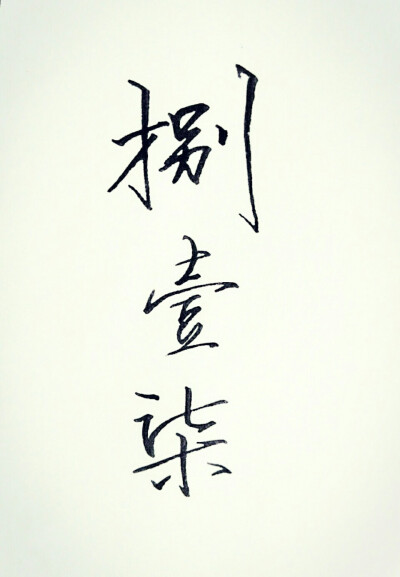 捌壹柒